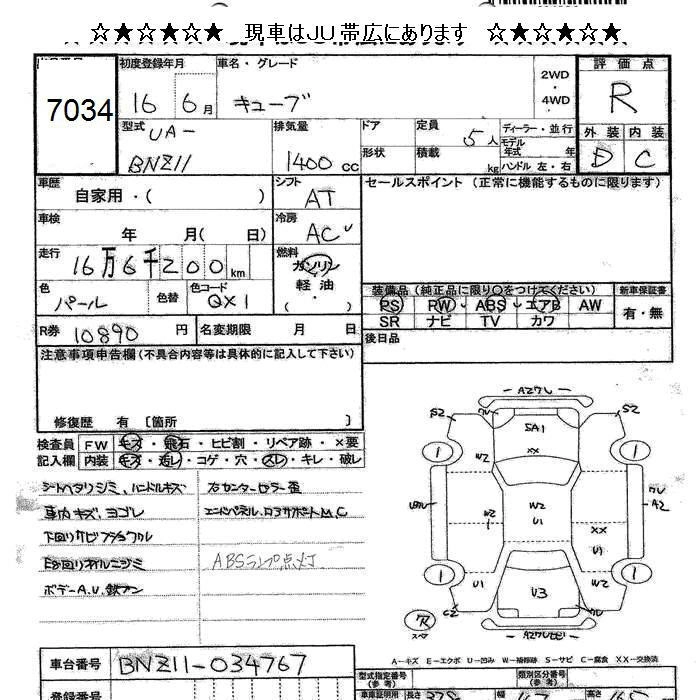 ☆★☆★☆★ 現車はJU帯広にあります ☆★☆★☆★
初度登録年月 車名・グレード 2WD・4WD 評価点
7034 16 6月 キューブ R
型式 UA-BNZ11 排気量 1400cc ドア 形状 定員 5人 積載 kg ディーラー・並行 モデル年式 年 ハンドル 左・右 外装 D 内装 C
車歴 自家用・( ) シフト AT セールスポイント (正常に機能するものに限ります)
車検 年 月( 日) 冷房 AC
走行 16万6千200km 燃料 ガソリン 軽油 ( ・ )
色 パール 色替 色コード QX1 装備品 (純正品に限り○をつけてください) 新車保証書
PS PW ABS エアB AW 有・無
SR ナビ TV カワ
R券 10890円 名変期限 月 日 後日品
注意事項申告欄 (不具合内容等は具体的に記入して下さい)
修復歴 有 〔箇所 〕
検査員 FW キズ・飛石・ヒビ割・リペア跡・×要
記入欄 内装 キズ・ ・コゲ・穴・スレ・キレ・破レ
シートヘタリシミ、ハンドルキズ 右センターピラー歪
車内キズ、ヨゴレ エンドパネル、ロアサポートM、C
下回りサビ
ABSランプ点灯
ボデーA.U.鉄フン
A2ワレ
S2 ワレ SA1 S2
XX
1 W2 W2 1
ワレ A2
W2 U1 W2 U1 XX U1
1 U1 U3 W2 1
C2 ワレ S2
A-キズ E-エクボ U-凹み W-補修跡 S-サビ C-腐食 XX-交換済
車台番号 BNZ11-034767 型式指定番号 (参考) 類別区分番号 (参考)
登録番号 車車証明用 (参考) 長さ